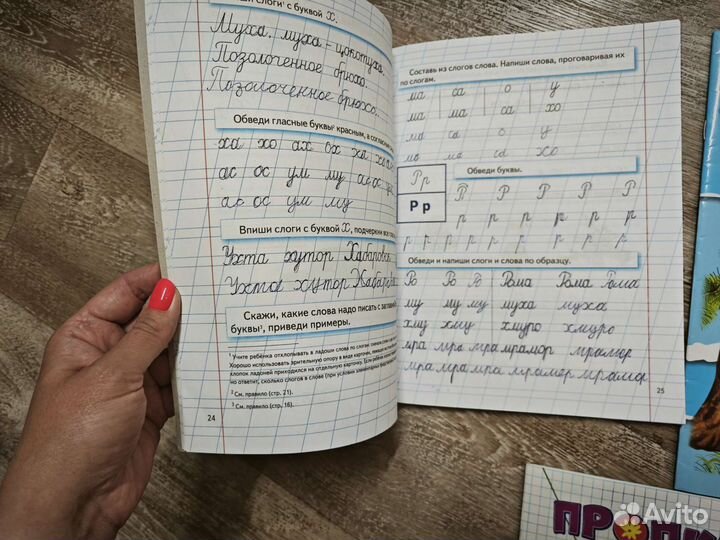 пиши слоги¹ с буквой Х.
Муха, муха - цокотуха,
Позолоченное брюхо.
Позолоченное брюхо.
Обведи гласные буквы² красным, а согласные
ха хо ах ох ха хо
ас ос ум му ас ос
ас ос ум му
Впиши слоги с буквой Х, подчеркни все
Ухта хутор Хабаровск
Ухта хутор
Скажи, какие слова надо писать с
буквы³, приведи примеры.
¹ Учите ребёнка отхлопывать в ладоши слова по слогам,
Хорошо использовать зрительную опору в виде карточек,
хлопок ладоней приходился на отдельную карточку. Если
но ответит, сколько слогов в слове (при условии
² См. правило (стр. 21).
³ См. правило (стр. 16).
24
Составь из слогов слова. Напиши слова, проговаривая их
по слогам.
ма са о у
ма ма са хо
ма са о у
ма ма са хо
Обведи буквы.
Рр Р Р Р Р Р
Р р р р р р р р
р р р р р р р
Обведи и напиши слоги и слова по образцу.
Ро Ро Ро Рома Рома Рома
му му му муха муха
хму хму хмуро хмуро
мра мра мра мрамор мрамор
мра мра мра мрамор мрамор
25
ПРОПИ
Avito